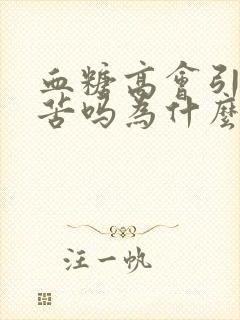 血糖高會引
苦嗎為什麼
汪一帆